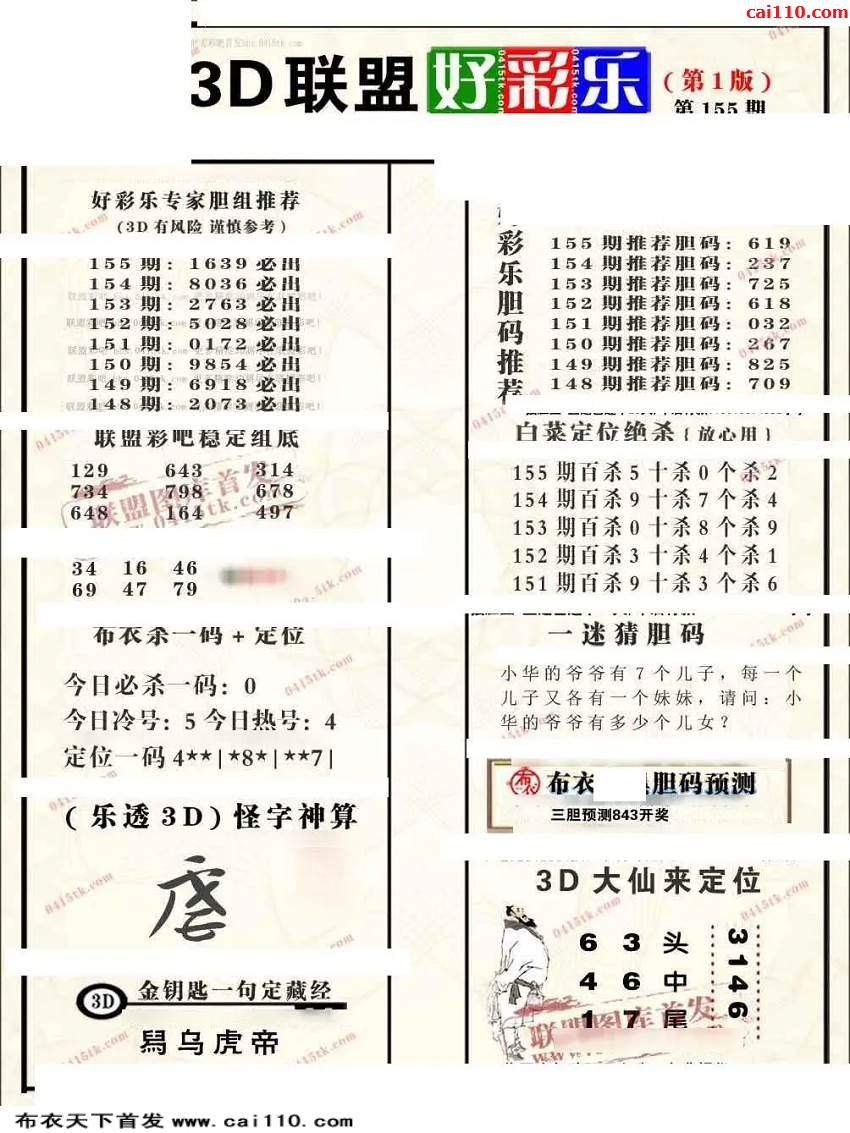 cai110.com
3D联盟好彩乐
(第1版)
第155期
好彩乐专家胆组推荐
(3D有风险 谨慎参考)
155期: 1639必出
154期: 8036必出
153期: 2763必出
152期: 5028必出
151期: 0172必出
150期: 9854必出
149期: 6918必出
148期: 2073必出
联盟彩吧稳定组底
129 643 314
734 798 678
648 164 497
34 16 46
69 47 79
布衣杀一码+定位
今日必杀一码: 0
今日冷号: 5 今日热号: 4
定位一码 4**|*8*|**7|
(乐透3D)怪字神算
3D 金钥匙一句定藏经
烏虎帝
彩乐胆码推荐
155期推荐胆码: 619
154期推荐胆码: 237
153期推荐胆码: 725
152期推荐胆码: 618
151期推荐胆码: 032
150期推荐胆码: 267
149期推荐胆码: 825
148期推荐胆码: 709
白菜定位绝杀{放心用}
155期百杀5十杀0个杀2
154期百杀9十杀7个杀4
153期百杀0十杀8个杀9
152期百杀3十杀4个杀1
151期百杀9十杀3个杀6
一迷猜胆码
小华的爷爷有7个儿子，每一个
儿子又各有一个妹妹，请问：小
华的爷爷有多少个儿女？
布衣 胆码预测
三胆预测843开奖
3D大仙来定位
6 3 头
4 6 中
1 7 尾
3146
联盟图库首发
布衣天下首发 www.cai110.com